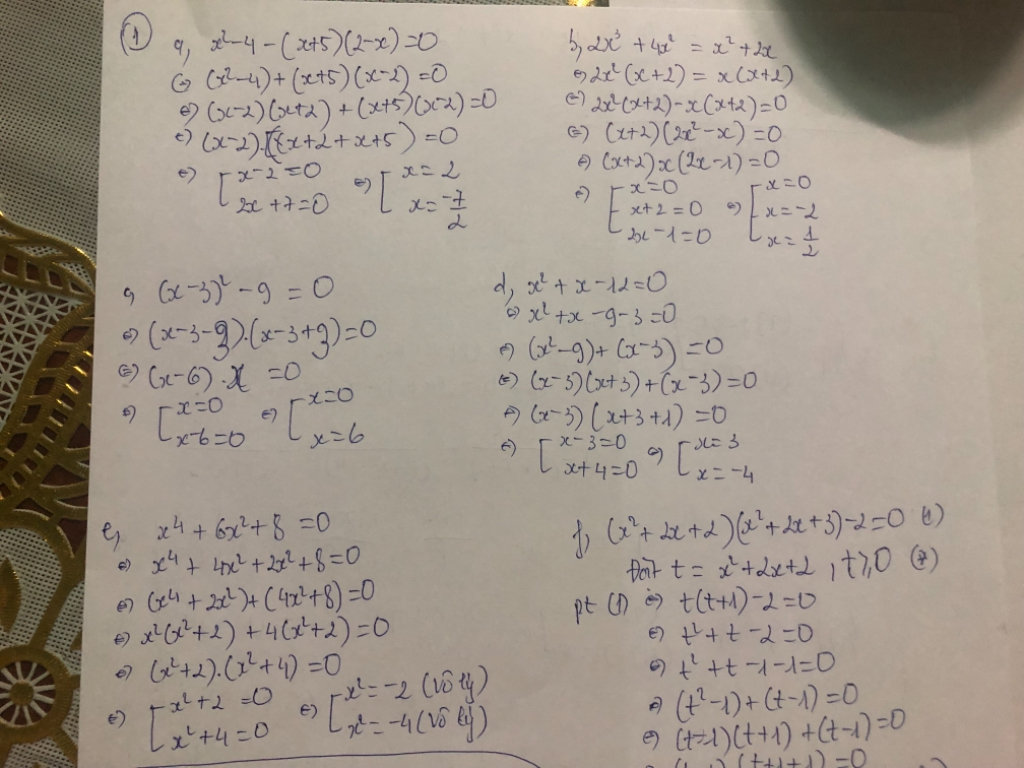 ① a, x² - 4 - (x+5)(2-x) = 0
⇔ (x²-4) + (x+5)(x-2) = 0
⇔ (x-2)(x+2) + (x+5)(x-2) = 0
⇔ (x-2).(x+2+x+5) = 0
⇔ [x-2=0 ⇔ [x=2
2x+7=0 x=-7/2
b, 2x³ + 4x² = x² + 2x
⇔ 2x²(x+2) = x(x+2)
⇔ 2x²(x+2) - x(x+2) = 0
⇔ (x+2)(2x²-x) = 0
⇔ (x+2)x(2x-1) = 0
⇔ [x=0 ⇔ [x=0
x+2=0 x=-2
2x-1=0 x=1/2
c, (x-3)² - 9 = 0
⇔ (x-3-3).(x-3+3) = 0
⇔ (x-6).x = 0
⇔ [x=0 ⇔ [x=0
x-6=0 x=6
d, x² + x - 12 = 0
⇔ x² + x - 9 - 3 = 0
⇔ (x²-9) + (x-3) = 0
⇔ (x-3)(x+3) + (x-3) = 0
⇔ (x-3)(x+3+1) = 0
⇔ [x-3=0 ⇔ [x=3
x+4=0 x=-4
e, x⁴ + 6x² + 8 = 0
⇔ x⁴ + 4x² + 2x² + 8 = 0
⇔ (x⁴+2x²) + (4x²+8) = 0
⇔ x²(x²+2) + 4(x²+2) = 0
⇔ (x²+2).(x²+4) = 0
⇔ [x²+2=0 ⇔ [x²=-2 (Vô lý)
x²+4=0 x²=-4 (Vô lý)
f, (x²+2x+2)(x²+2x+3) - 2 = 0 (1)
Đặt t = x²+2x+2, t ≥ 0 (*)
pt (1) ⇔ t(t+1) - 2 = 0
⇔ t² + t - 2 = 0
⇔ t² + t - 1 - 1 = 0
⇔ (t²-1) + (t-1) = 0
⇔ (t-1)(t+1) + (t-1) = 0
(t+1+1) = 0